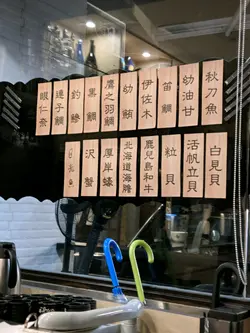 秋刀魚
幼油甘
笛鯛
伊佐木
幼鮪
鷹之羽鯛
黒鯛
釣鯵
連子鯛
眼仁奈
白見貝
活帆立貝
粒貝
鹿兒島和牛
北海道海膽
厚岸蠔
沢蟹